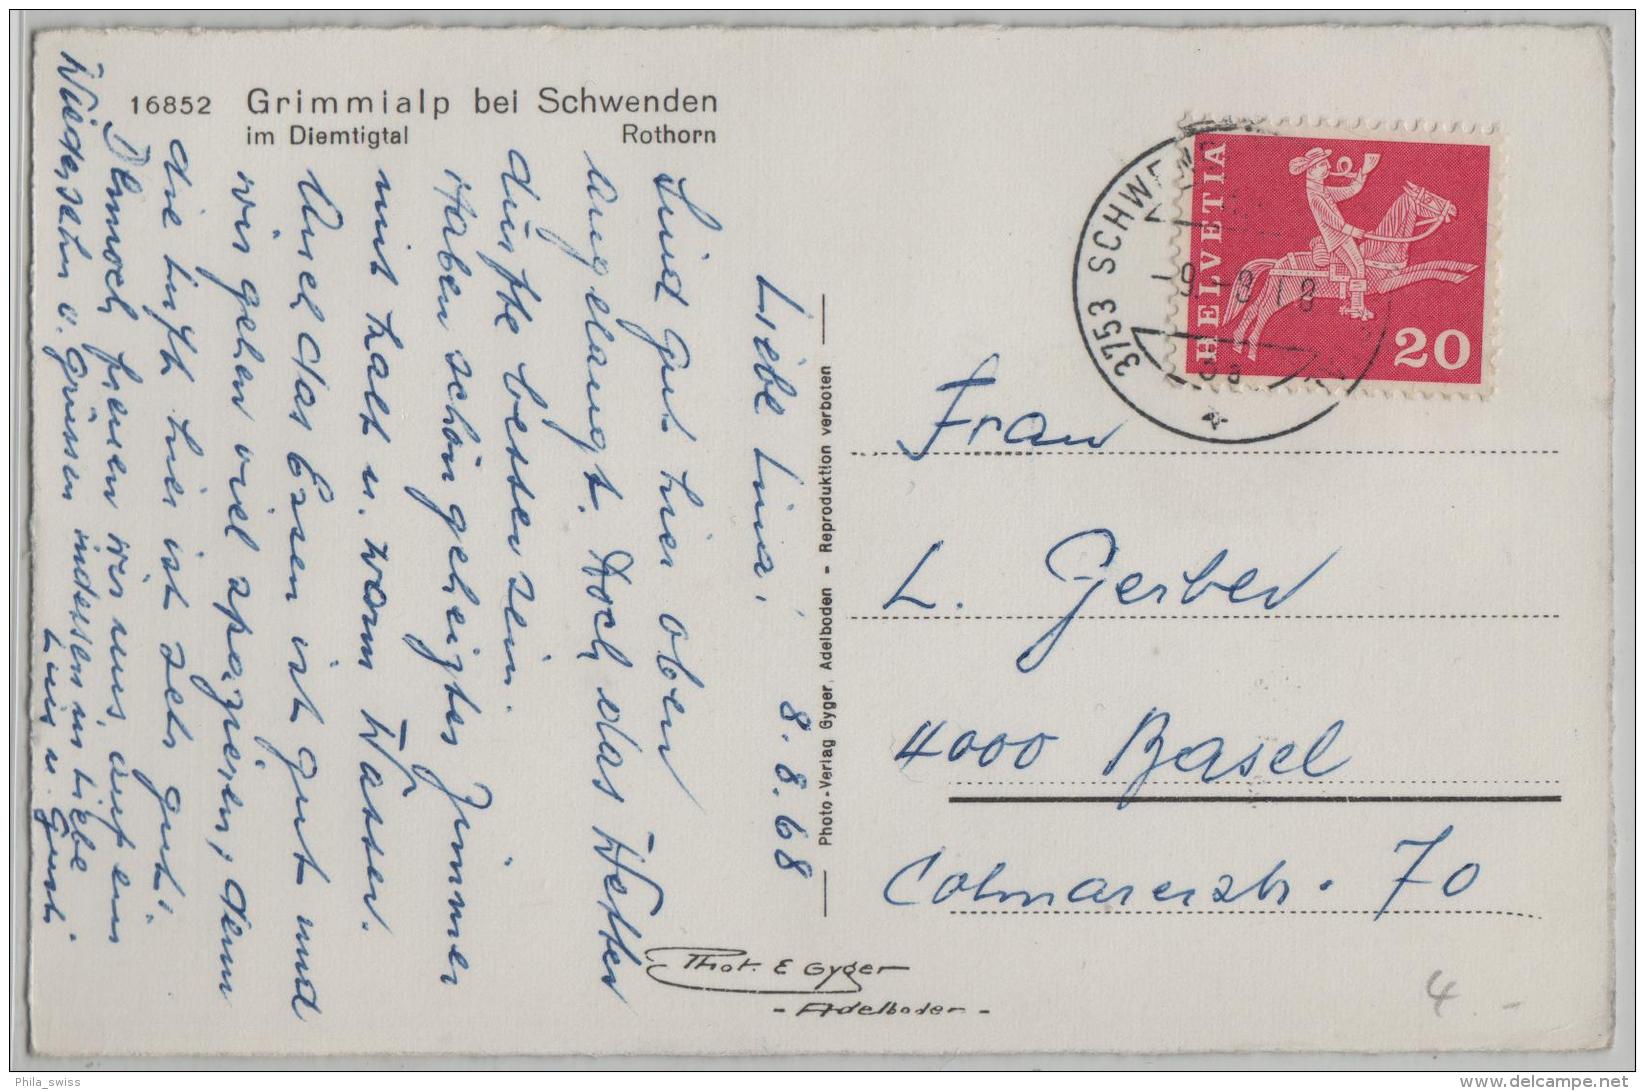 16852 Grimmialp bei Schwenden
im Diemtigtal Rothorn
8.8.68
Liebe Lina!
Sind gut hier oben
angelangt. Doch das Wetter
dürfte besser sein.
Haben schön geheiztes Zimmer
mit kalt u. warm Wasser.
Und das Essen ist gut und
wir gehen viel spazieren, denn
die Luft hier ist sehr gut.
Dennoch freuen wir uns auf ein
Wiedersehn u. Grüssen indessen in Liebe
u. Gusti
Photo-Verlag Gyger, Adelboden - Reproduktion verboten
Phot. E Gyger
- Adelboden -
3753 SCHWEN
HELVETIA
20
Frau
L. Gerber
4000 Basel
Colmarerstr. 70
4.-
Phila_swiss
www.delcampe.net